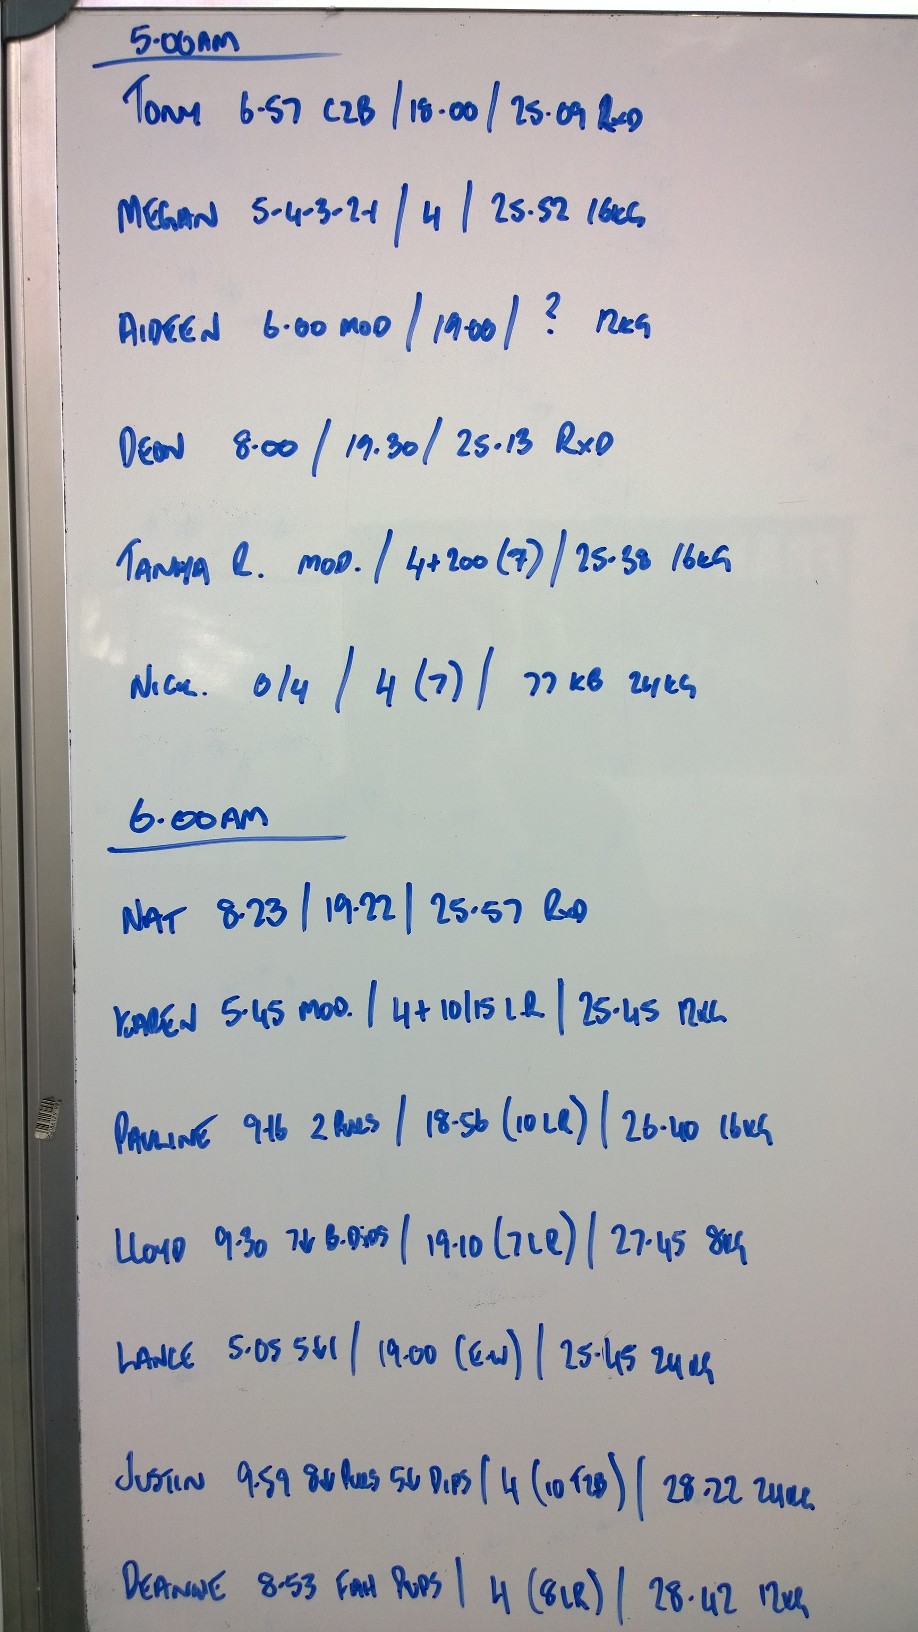 5.00AM
TONY 6.57 C2B / 18.00 / 25.09 RxD
MEGAN 5-4-3-2-1 / 4 / 25.52 16KG
AIDEEN 6.00 MOD / 19.00 / ? 12KG
DEON 8.00 / 19.30 / 25.13 RxD
TANYA R. MOD. / 4+200 (7) / 25.38 16KG
NICK. 0/4 / 4 (7) / 77 KB 24KG
6.00AM
NAT 8.23 / 19.22 / 25.57 RxD
KAREN 5.45 MOD. / 4+10/15 LR / 25.45 12KG
PAULINE 9.16 2 PULLS / 18.56 (10 LR) / 26.40 16KG
LLOYD 9.30 B.DIPS / 19.10 (7 LR) / 27.45 8KG
LANCE 5.05 / 19.00 / 25.45 24KG
JUSTIN 9.59 PULLS DIPS / 4 (10 T2B) / 28.22 24KG
DEANNE 8.53 / 4 (8 LR) / 28.42 12KG